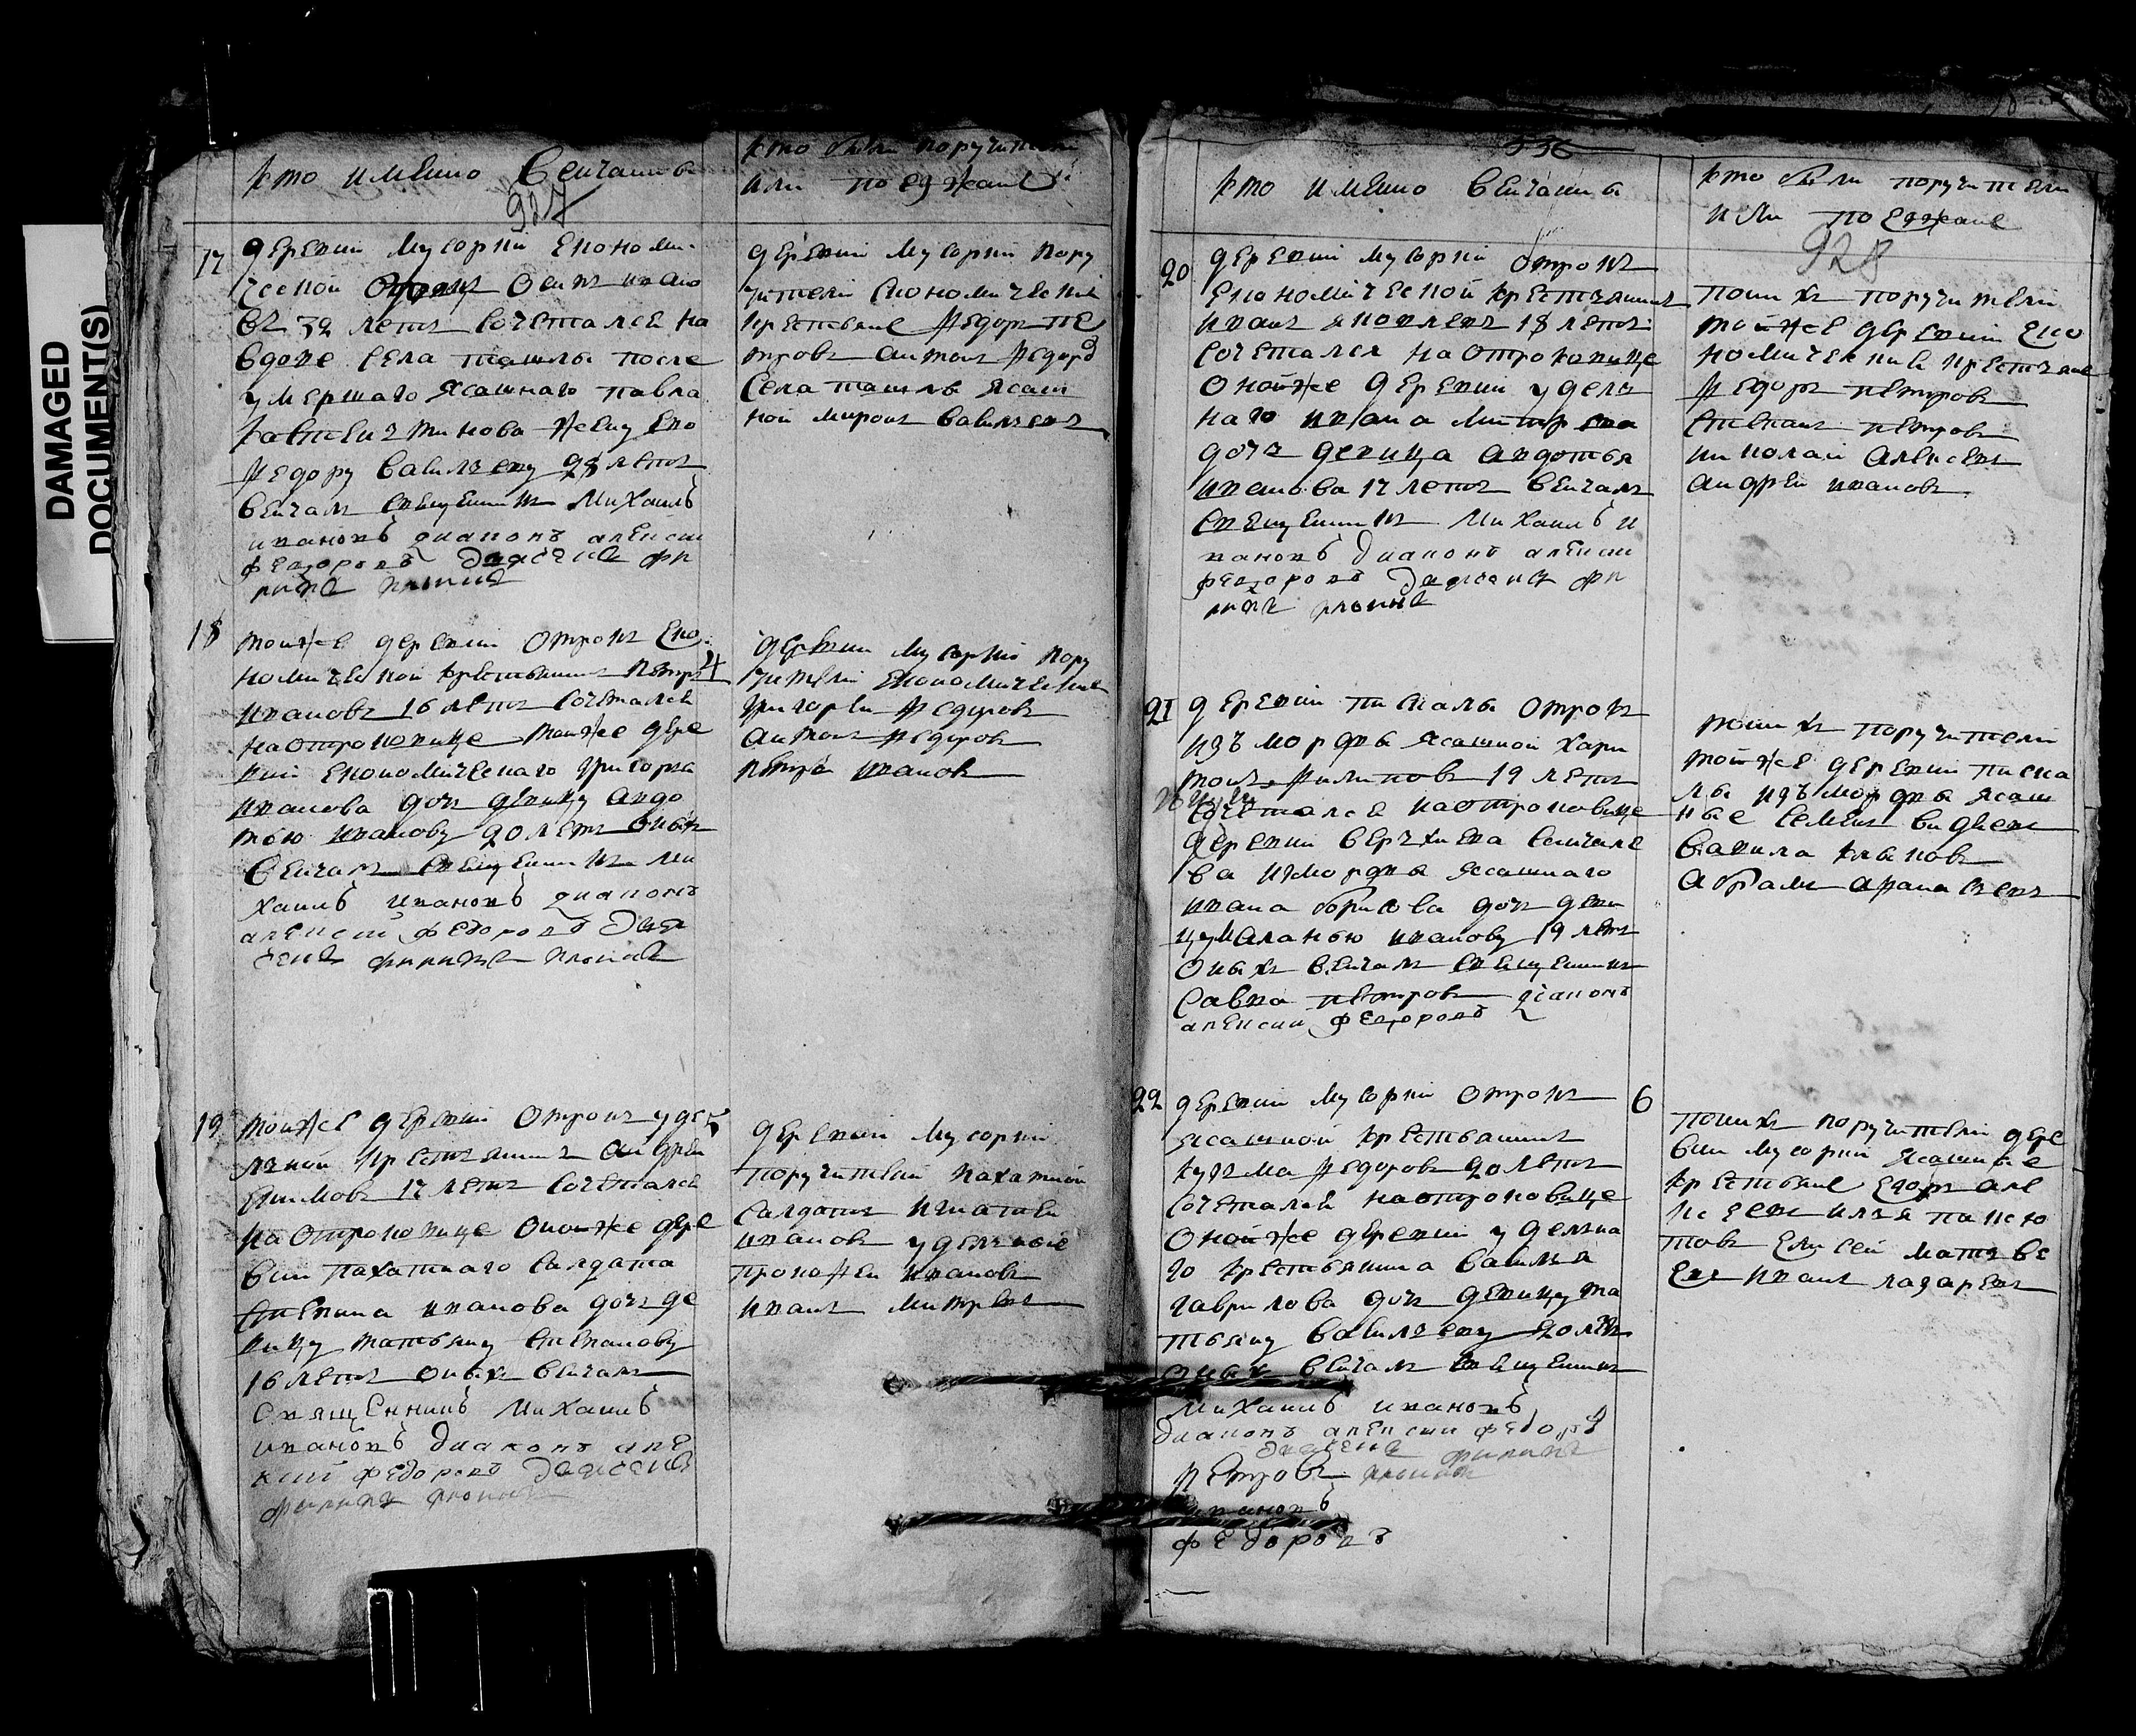 DAMAGED
DOCUMENT(S)
кто имено венчаны
927
кто были поручители
или поезжане
17
деревни Мусорки економи
ческой Осипъ ивано
въ 32 летъ сочетался на
вдове села ташлы после
умершаго ясашнаго павла
жену ево
федору васильеву 28 летъ
венчалъ священникъ михаилъ
ивановъ диаконъ алексеи
федоровъ дьячекъ фи
липъ
деревни Мусорки пору
чители економически
крестьяне федоръ пе
тровъ антонъ федоро
села ташлы ясаш
ной миронъ васильевъ
18
тойже деревни отрокъ еко
номической крестьянинъ петръ
4
ивановъ 16 летъ сочетался
на отроковице тойже дере
вни економическаго григорья
иванова дочь девицу авдо
тью иванову 20 летъ оныхъ
венчалъ священникъ ми
хаилъ ивановъ диаконъ
алексеи федоровъ дья
чекъ филипъ
деревни Мусорки пору
чители економические
григореи федоровъ
антонъ федоровъ
петръ ивановъ
19
тойже деревни отрокъ удел
5
ьной крестьянинъ андреи
ефимовъ 17 летъ сочетался
на отроковице онойже дере
вни пахатнаго салдата
степана иванова дочь де
вицу татьяну степанову
16 летъ оныхъ венчалъ
священникъ михаилъ
ивановъ диаконъ але
ксии федоровъ дьячекъ
филипъ
деревни Мусорки
поручители пахатной
салдатъ игнатеи
ивановъ удельные
прокофеи ивановъ
иванъ митревъ
336
кто имено венчаны
кто были поручители
или поезжане
928
20
деревни мусорки отрокъ
економической крестьянинъ
иванъ яковлевъ 18 летъ
сочетался на отроковице
онойже деревни удель
наго ивана митрева
дочь девица авдотья
иванова 17 летъ венчалъ
священникъ михаилъ и
вановъ диаконъ алексии
федоровъ дьячекъ фи
липъ
по нихъ поручители
тойже деревни еко
номические крестьяне
федоръ петровъ
степанъ петровъ
николаи алексеевъ
андреи ивановъ
21
деревни пискалы отрокъ
изъ мордвы ясашной хари
тонъ филиповъ 19 летъ
сочетался на отроковице
деревни верхнева санчале
ва из мордвы ясашнаго
ивана борисова дочь деви
цу маланью иванову 19 летъ
оныхъ венчалъ священникъ
савва петровъ диаконъ
алексии федоровъ
по нихъ поручители
тойже деревни писка
лы изъ мордвы ясаш
ные семенъ
вавила
абрамъ афанасьевъ
22
деревни мусорки отрокъ
6
ясашной крестьянинъ
кузьма федоровъ 20 летъ
сочетался на отроковице
онойже деревни удельна
го крестьянина василья
гаврилова дочь девицу та
тьяну васильеву 20 летъ
оныхъ венчалъ священникъ
михаилъ ивановъ
диаконъ алексии федоро
дьячекъ филипъ
петровъ
ивановъ
федоровъ
по нихъ поручители дере
вни мусорки ясашные
крестьяне егоръ але
ксеевъ илья панею
товъ елисеи матвее
евъ иванъ лазаревъ